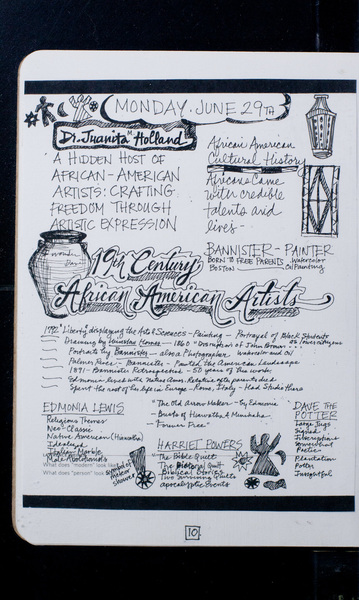 MONDAY. JUNE 29TH
Dr. Juanita M Holland
A HIDDEN HOST OF
AFRICAN-AMERICAN
ARTISTS: CRAFTING
FREEDOM THROUGH
ARTISTIC EXPRESSION
African American
Cultural History
Africans Came
with credible
talents and
lives--
BANNISTER-PAINTER
BORN TO FREE PARENTS Watercolor
BOSTON Oil Painting
19th Century
African American Artists
1792 Liberty displaying the Arts & Sciences - Painting - Portrayal of Black Students
Drawing by 1860
Portraits by Bannister - also a Photographer Watercolor and Oil
Palmer River - Bannister - Painted the American Landscape
1891 - Bannister Retrospective - 50 years of his work
Spent the rest of life in Europe - Rome, Italy - Had Studio there
EDMONIA LEWIS
Religious Themes
Neo-Classic
Native American (Hiawatha)
Idealized
Italian Marble
What does "modern" look like
What does "person" look
"The Old Arrow Maker" - by Edmonia
Busts of Hiawatha & Minnehaha
"Forever Free"
HARRIET POWERS
The Bible Quilt
The Pictorial Quilt
Biblical Stories
Two Surviving Quilts
Apocalyptic Events
Symbol of
meteor
shower
DAVE THE
POTTER
Large Jugs
Signed
Inscriptions
Poetic
Plantation
Potter
Insightful
10